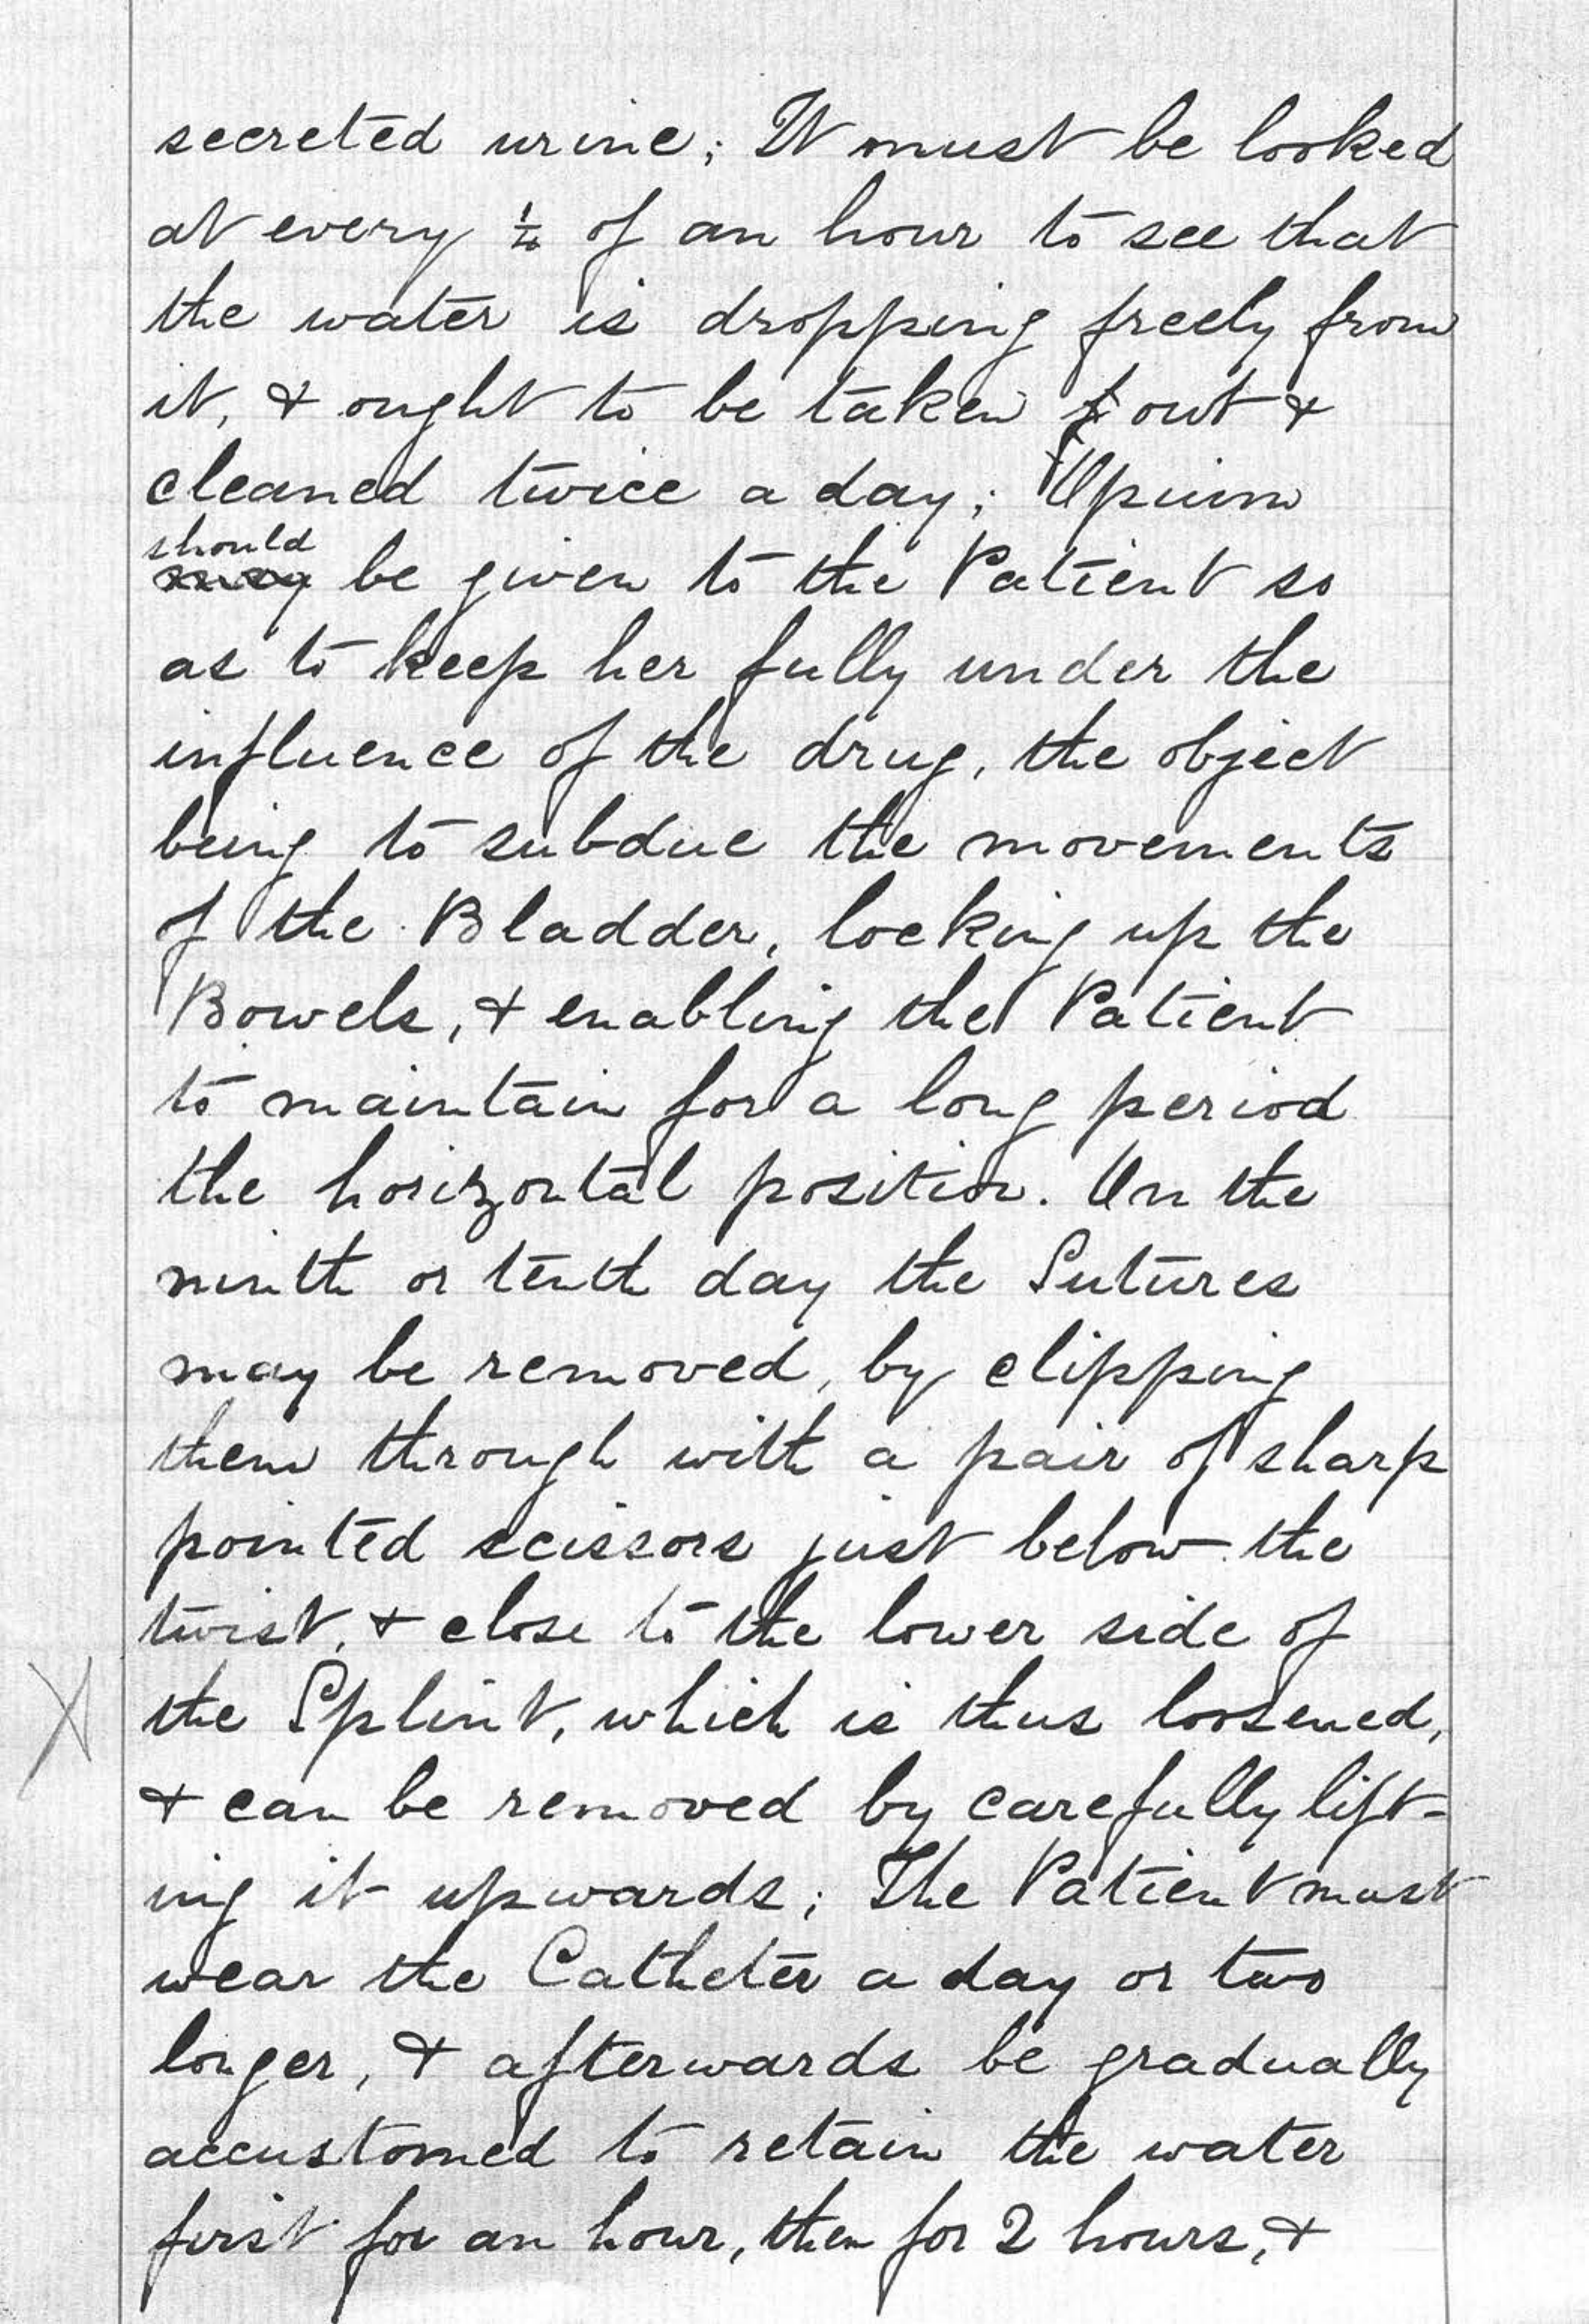 secreted urine; It must be looked
at every ¼ of an hour to see that
the water is dropping freely from
it, & ought to be taken out &
cleaned twice a day; Opium
should
may be given to the Patient so
as to keep her fully under the
influence of the drug, the object
being to subdue the movements
of the Bladder, locking up the
Bowels, & enabling the Patient
to maintain for a long period
the horizontal position. On the
ninth or tenth day the Sutures
may be removed, by clipping
them through with a pair of sharp
pointed scissors just below the
twist, & close to the lower side of
the Splint, which is thus loosened,
& can be removed by carefully lift-
ing it upwards; The Patient must
wear the Catheter a day or two
longer, & afterwards be gradually
accustomed to retain the water
first for an hour, then for 2 hours, &